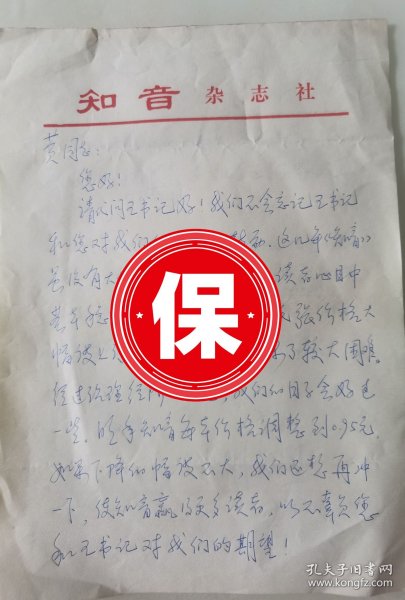 知音 杂志社
黄同志：
您好！
请代问王书记好！我们不会忘记王书记
和您对我们
这几年《知音》
虽没有大
读者心目中
保
纸张价格大
幅度上
了较大困难。
经过治理经济
我们的日子会好过
一些。明年知音每本价格调整到0.95元，
如果下降的幅度不大，我们还想再冲
一下，使知音赢得更多读者，以不辜负您
和王书记对我们的期望！
孔夫子旧书网
www.kongfz.com